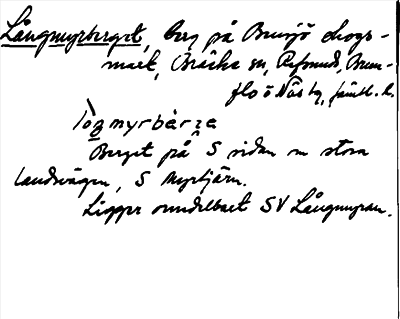 Långmyrberget, berg på Bensjö skogs-
mark, Bräcke sn, Refsund, Brun-
flo o Näs tg, Jämtl. l.
Berget på S sidan om stora
landsvägen, S Myrtjärn.
Ligger omedelbart SV Långmyran.